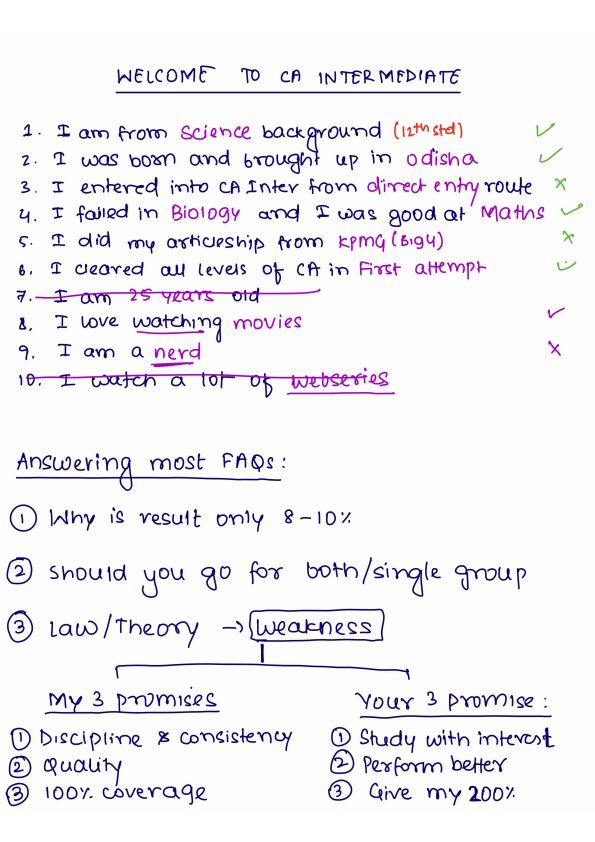 WELCOME TO CA INTERMEDIATE
1. I am from science background (12th std) ✓
2. I was born and brought up in odisha ✓
3. I entered into CA Inter from direct entry route ×
4. I failed in Biology and I was good at Maths ✓
5. I did my articleship from KPMG (Big4) ×
6. I cleared all levels of CA in First attempt ✓
7. I am 25 years old
8. I love watching movies ✓
9. I am a nerd ×
10. I watch a lot of webseries
Answering most FAQs:
① Why is result only 8-10%
② Should you go for both/single group
③ Law/Theory → weakness
My 3 promises
① Discipline & consistency
② Quality
③ 100% coverage
Your 3 promise:
① Study with interest
② Perform better
③ Give my 200%